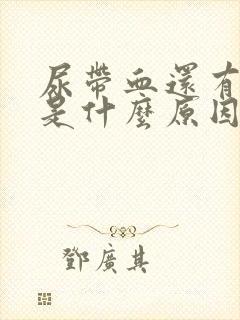 尿帶血還有
是什麼原因
鄧廣其